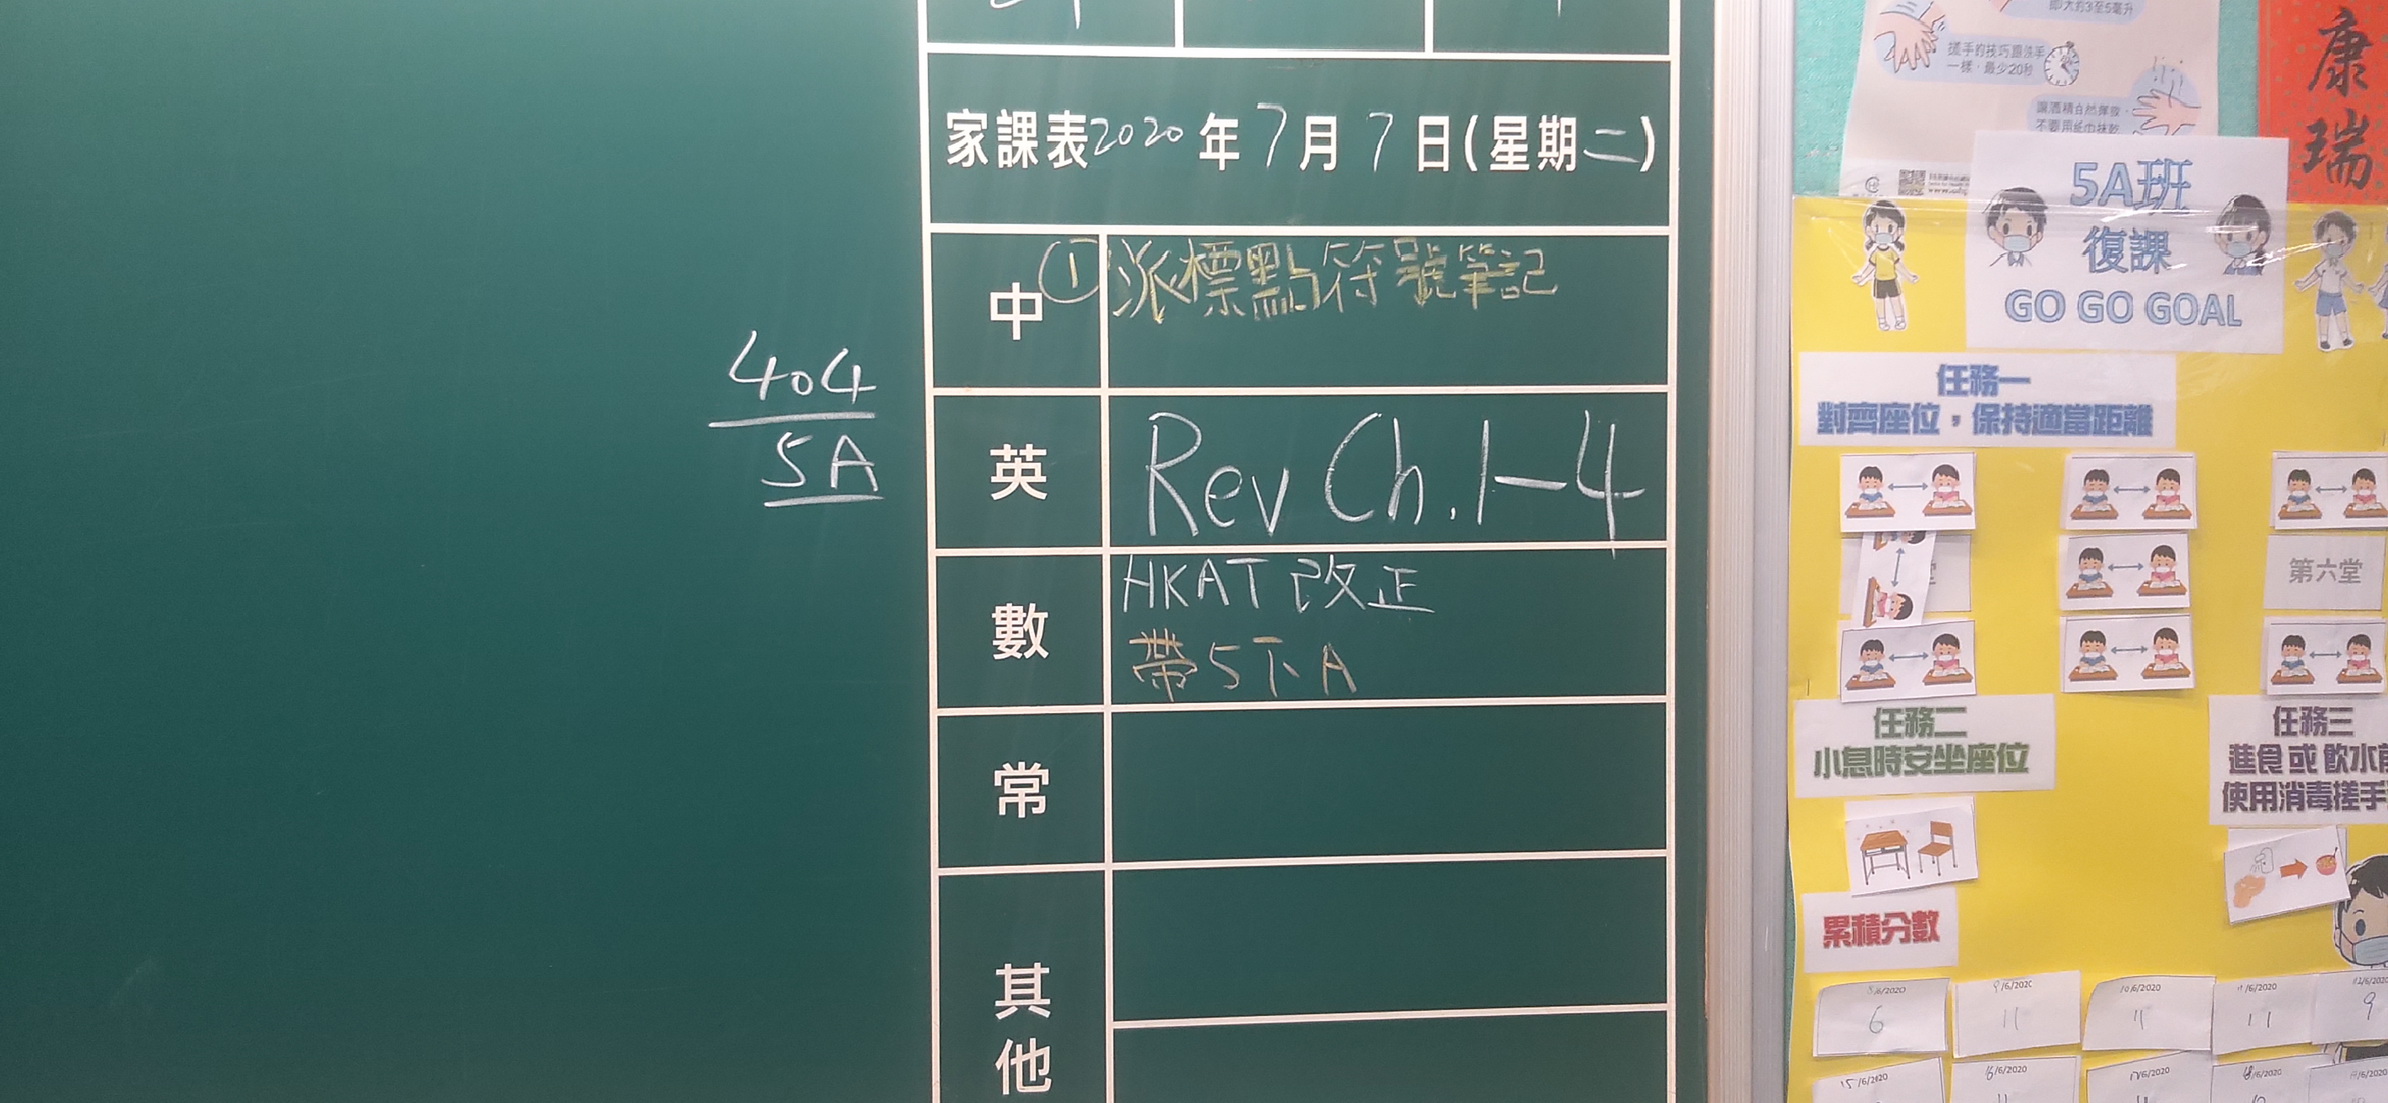 家課表2020年7月7日(星期二)
中
①派標點符號筆記
404
5A
英
Rev Ch.1-4
數
HKAT 改正
帶5下A
常
其他
即大約3至5毫升
搓手的技巧跟洗手
一樣，最少20秒
讓酒精自然揮發，
不要用紙巾抹乾
康瑞
5A班
復課
GO GO GOAL
任務一
對齊座位，保持適當距離
第六堂
任務二
小息時安坐座位
任務三
進食或飲水前
使用消毒搓手
累積分數
8/6/2020
6
9/6/2020
11
10/6/2020
11
11/6/2020
11
12/6/2020
9
15/6/2020
16/6/2020
17/6/2020
18/6/2020